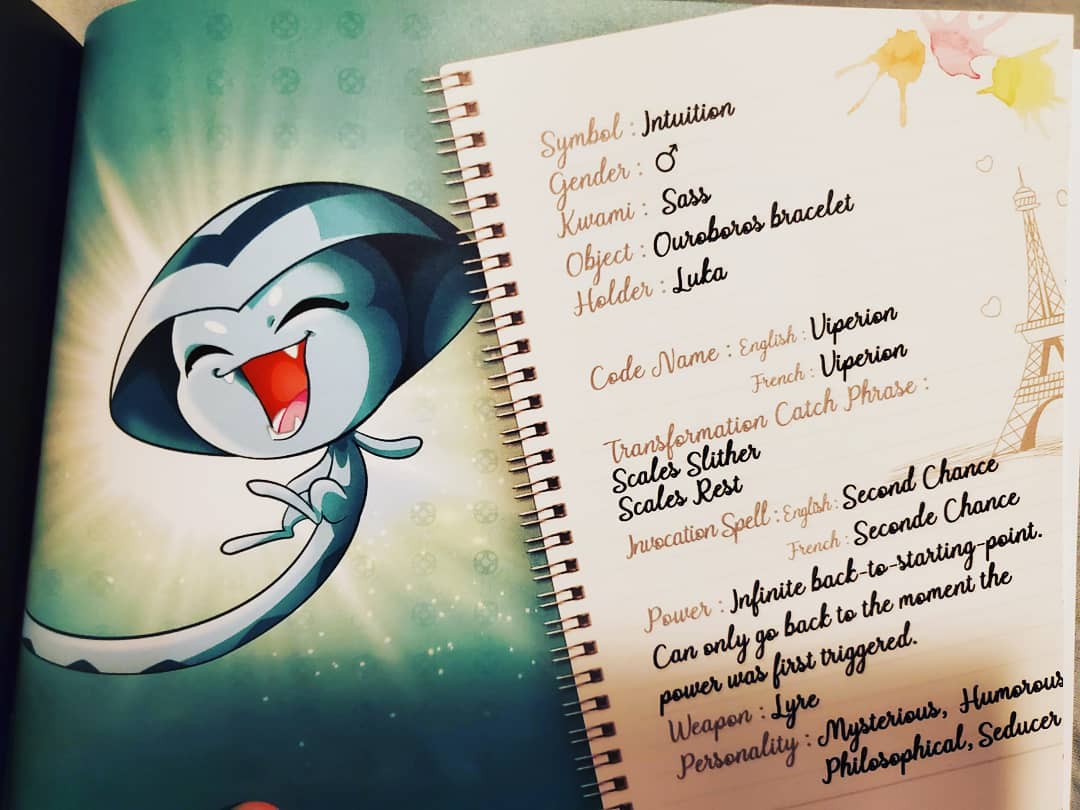 Symbol : Intuition
Gender : ♂
Kwami : Sass
Object : Ouroboros bracelet
Holder : Luka
Code Name : English : Viperion
French : Viperion
Transformation Catch Phrase :
Scales Slither
Scales Rest
Invocation Spell : English : Second Chance
French : Seconde Chance
Power : Infinite back-to-starting-point.
Can only go back to the moment the
power was first triggered.
Weapon : Lyre
Personality : Mysterious, Humorous
Philosophical, Seducer